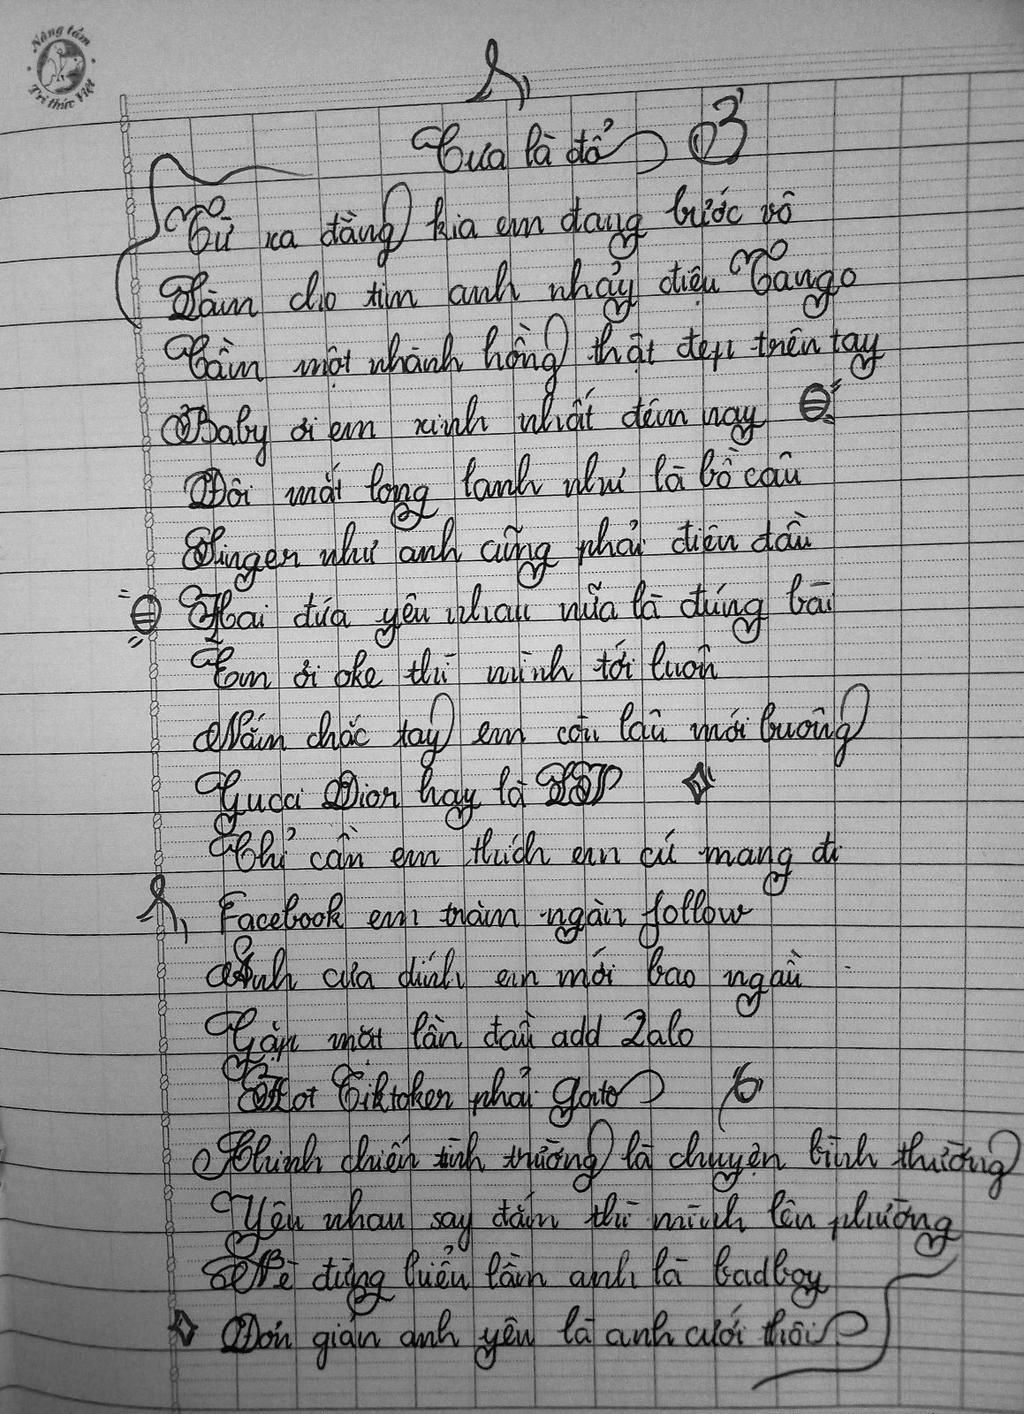 Nâng tầm
Tri thức Việt
Cưa là đổ
Từ xa đằng kia em đang bước vô
Làm cho tim anh nhảy điệu Tango
Cầm một nhành hồng thật đẹp trên tay
Baby ơi em xinh nhất đêm nay
Đôi mắt long lanh như là bồ câu
Singer như anh cũng phải điên đầu
Hai đứa yêu nhau nữa là đúng bài
Em ơi oke thì mình tới luôn
Nắm chắc tay em còn lâu mới buông
Gucci Dior hay là
Chỉ cần em thích em cứ mang đi
Facebook em trăm ngàn follow
Anh cưa dính em mới bao ngầu
Gặp mặt lần đầu add Zalo
Hot Tiktoker phải gato
Chinh chiến tình trường là chuyện bình thường
Yêu nhau say đắm thì mình lên phường
Nè đừng hiểu lầm anh là badboy
Đơn giản anh yêu là anh cưới thôi